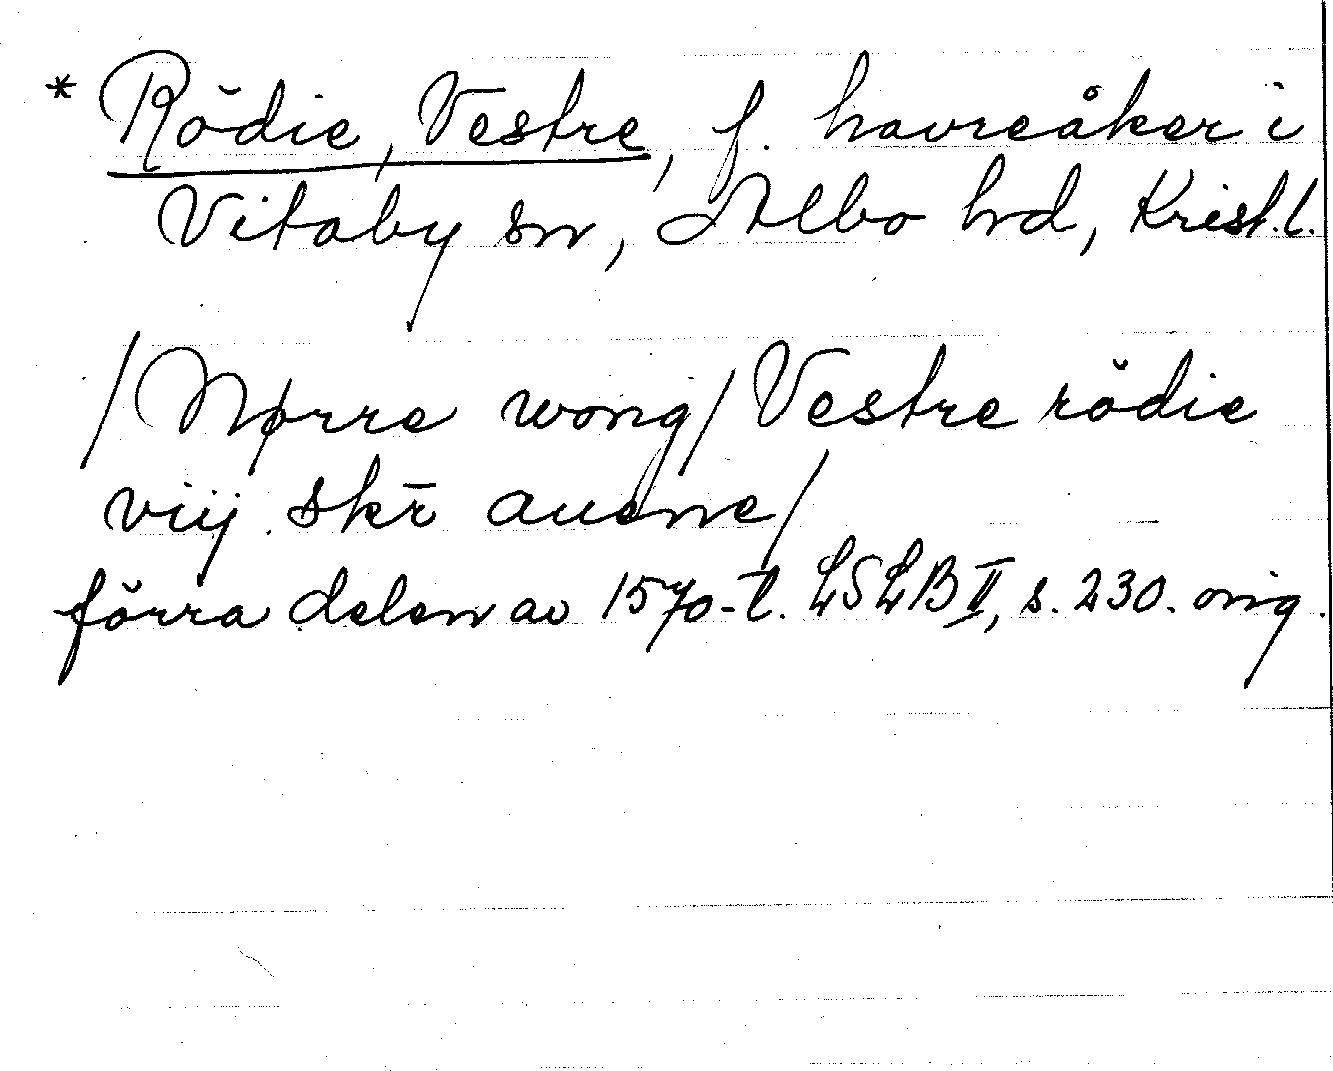 * Rödie, Vestre, f. havreåker i
Vitaby sn, Albo hd, Krist.l.
/Nørre wong/ Vestre rŏdie
viij skr̄ auene/
förra delen av 1570-t. LSLB II, s. 230. orig.